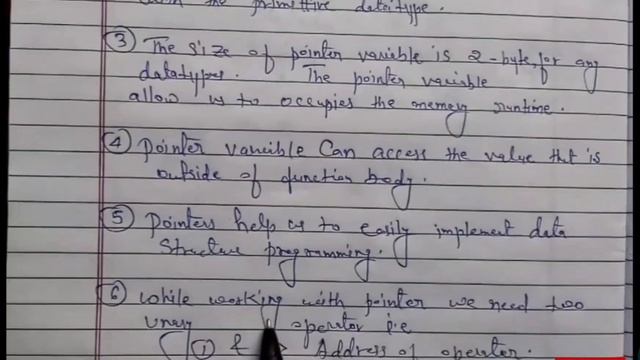 the primitive datatype.
③ The size of pointer variable is 2-byte for any
datatypes. The pointer variable
allow us to occupies the memory runtime.
④ pointer variable can access the value tht is
outside of function body.
⑤ pointers help us to easily implement data
structure programming.
⑥ while working with pointer we need too
unary operator i.e
① & Address of operator.